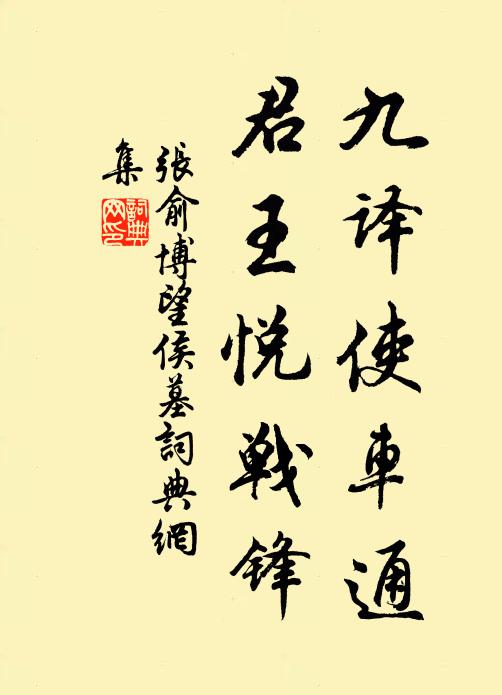 九译使车通
君王悦战锋
張俞博望侯墓詞典網
集
詞典
网印